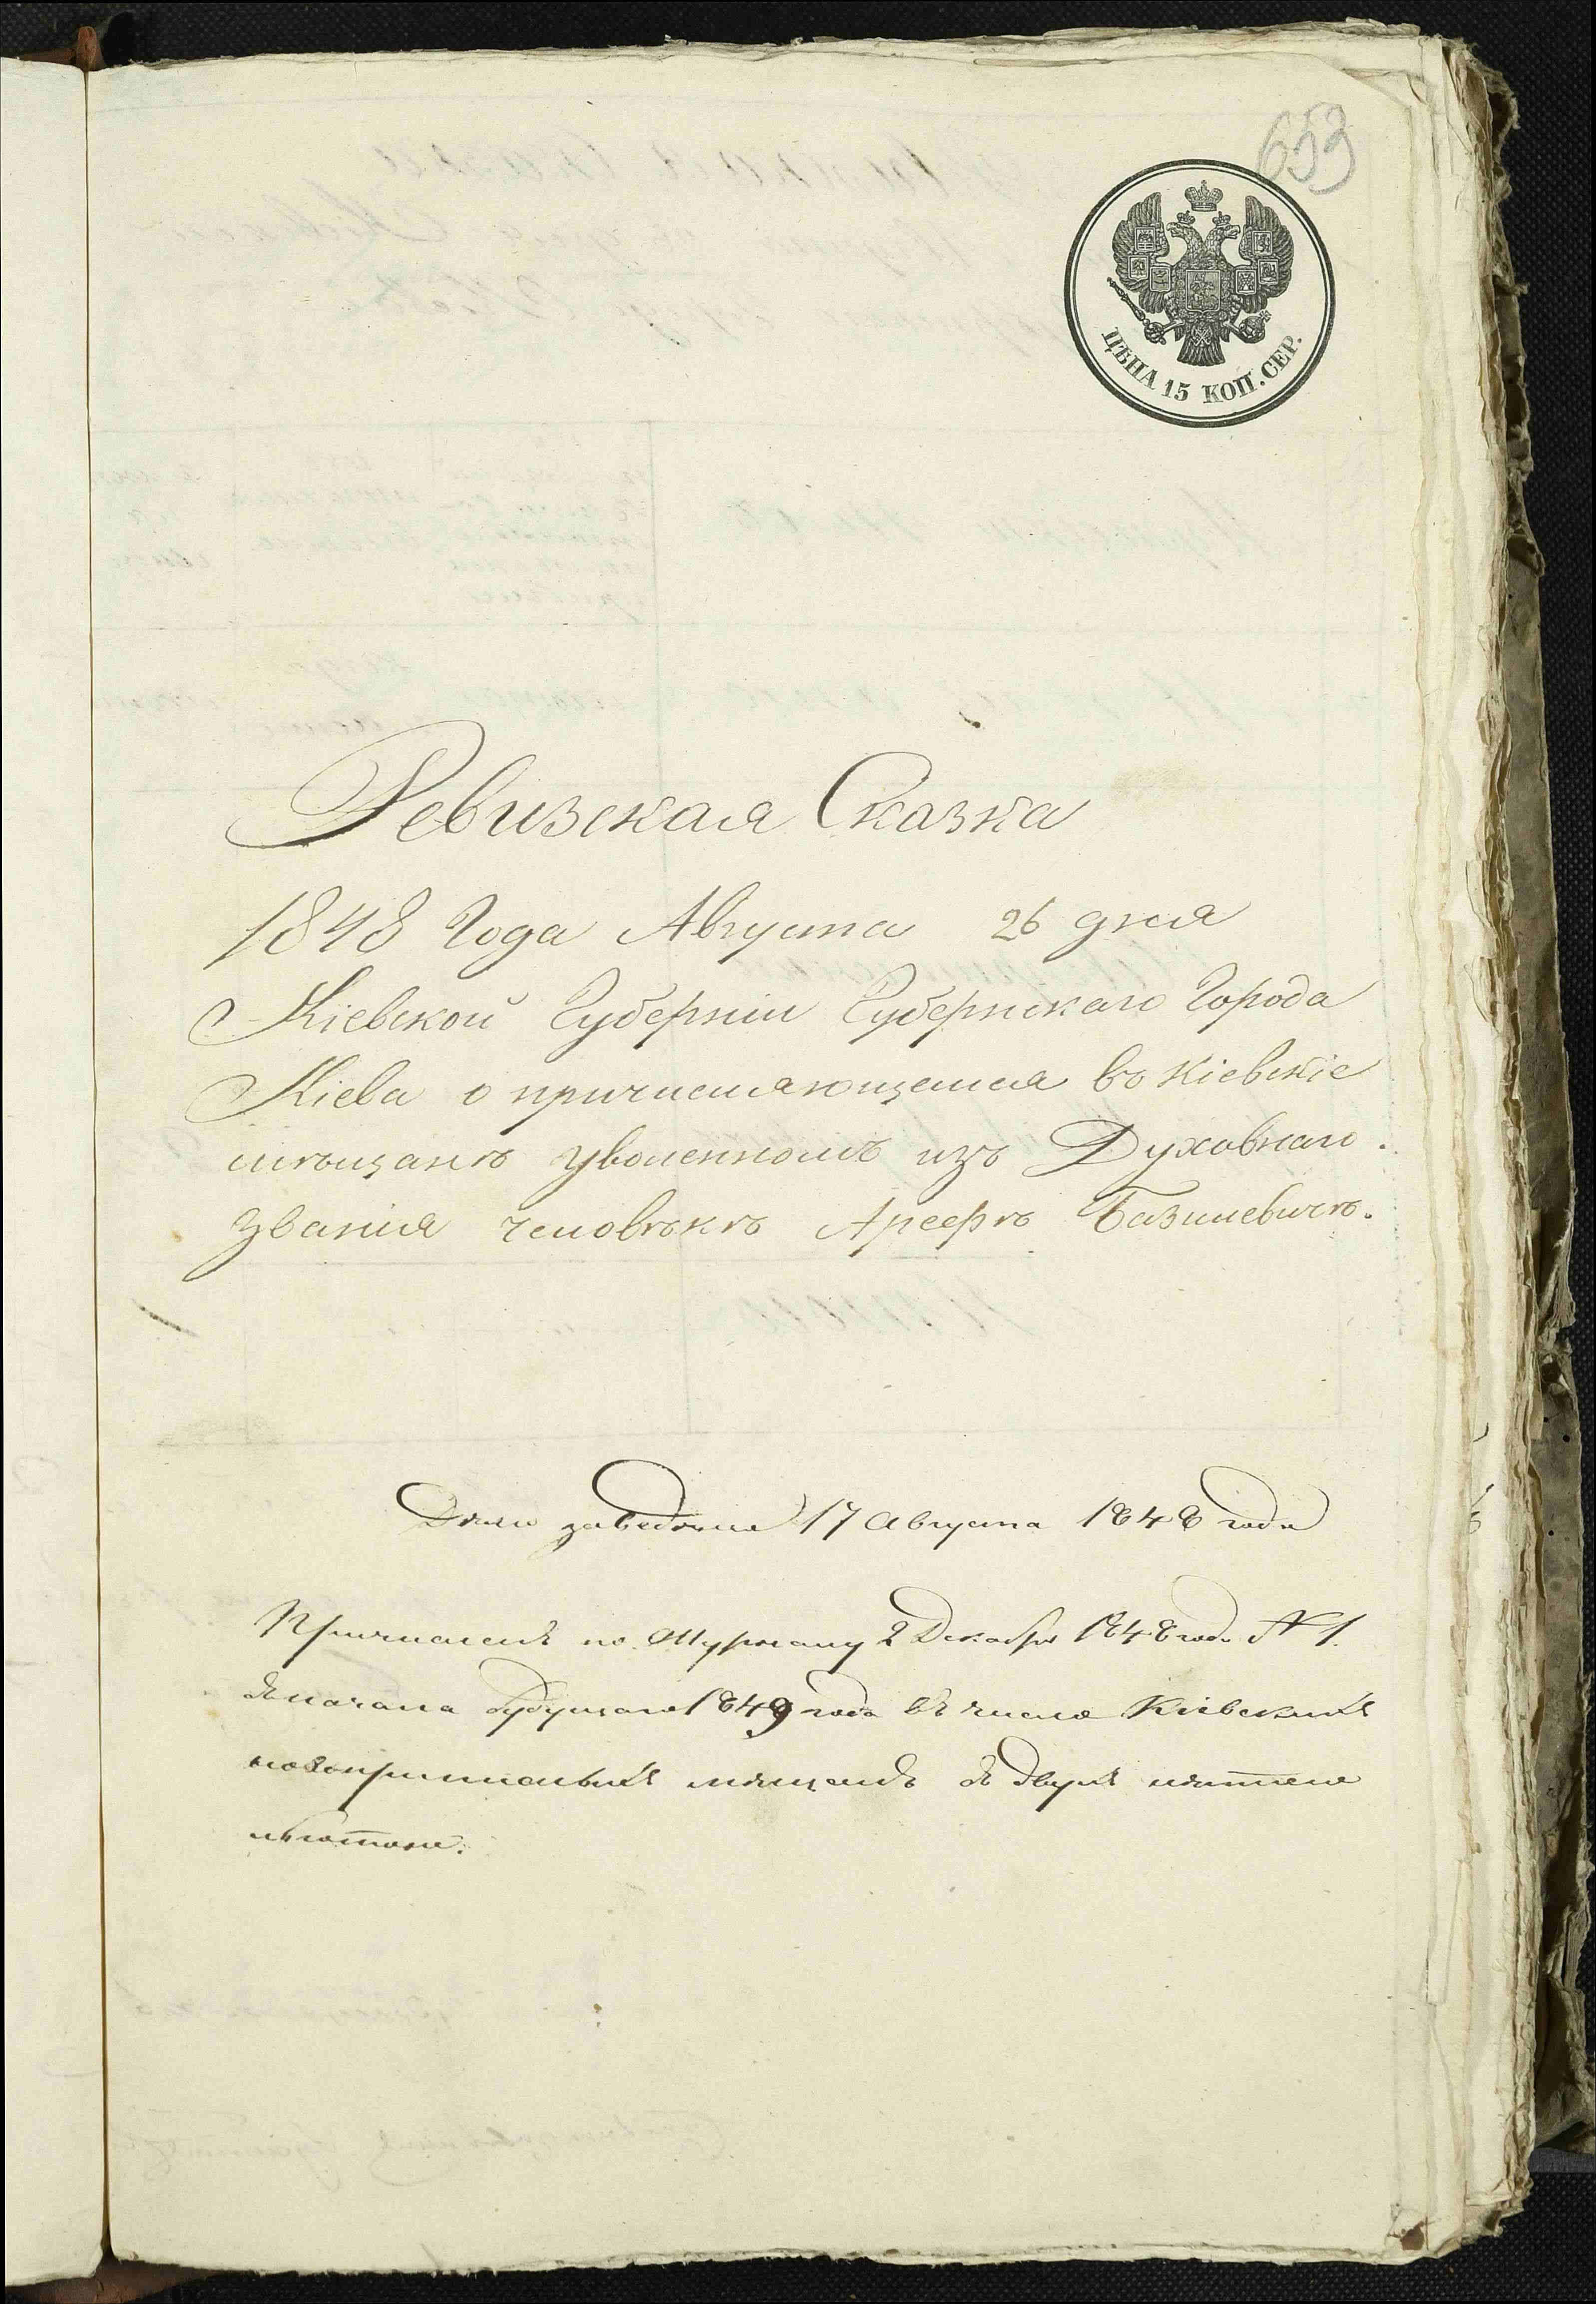 653
ЦѢНА 15 КОП. СЕР.
Ревизская Сказка
1848 Года Августа 26 дня
Кіевской Губерніи Губернскаго Города
Кіева о причисляющемся въ Кіевскіе
мѣщане уволенномъ изъ Духовнаго
званія человѣкѣ Арефѣ Базилевичѣ.
Дѣло заведено 17 Августа 1848 года
Причисленъ по Журналу 2 Декабря 1848 года № 1.
съ начала будущаго 1849 года въ число Кіевскихъ
новоприписныхъ мѣщанъ съ двухъ лѣтнею
льготою.